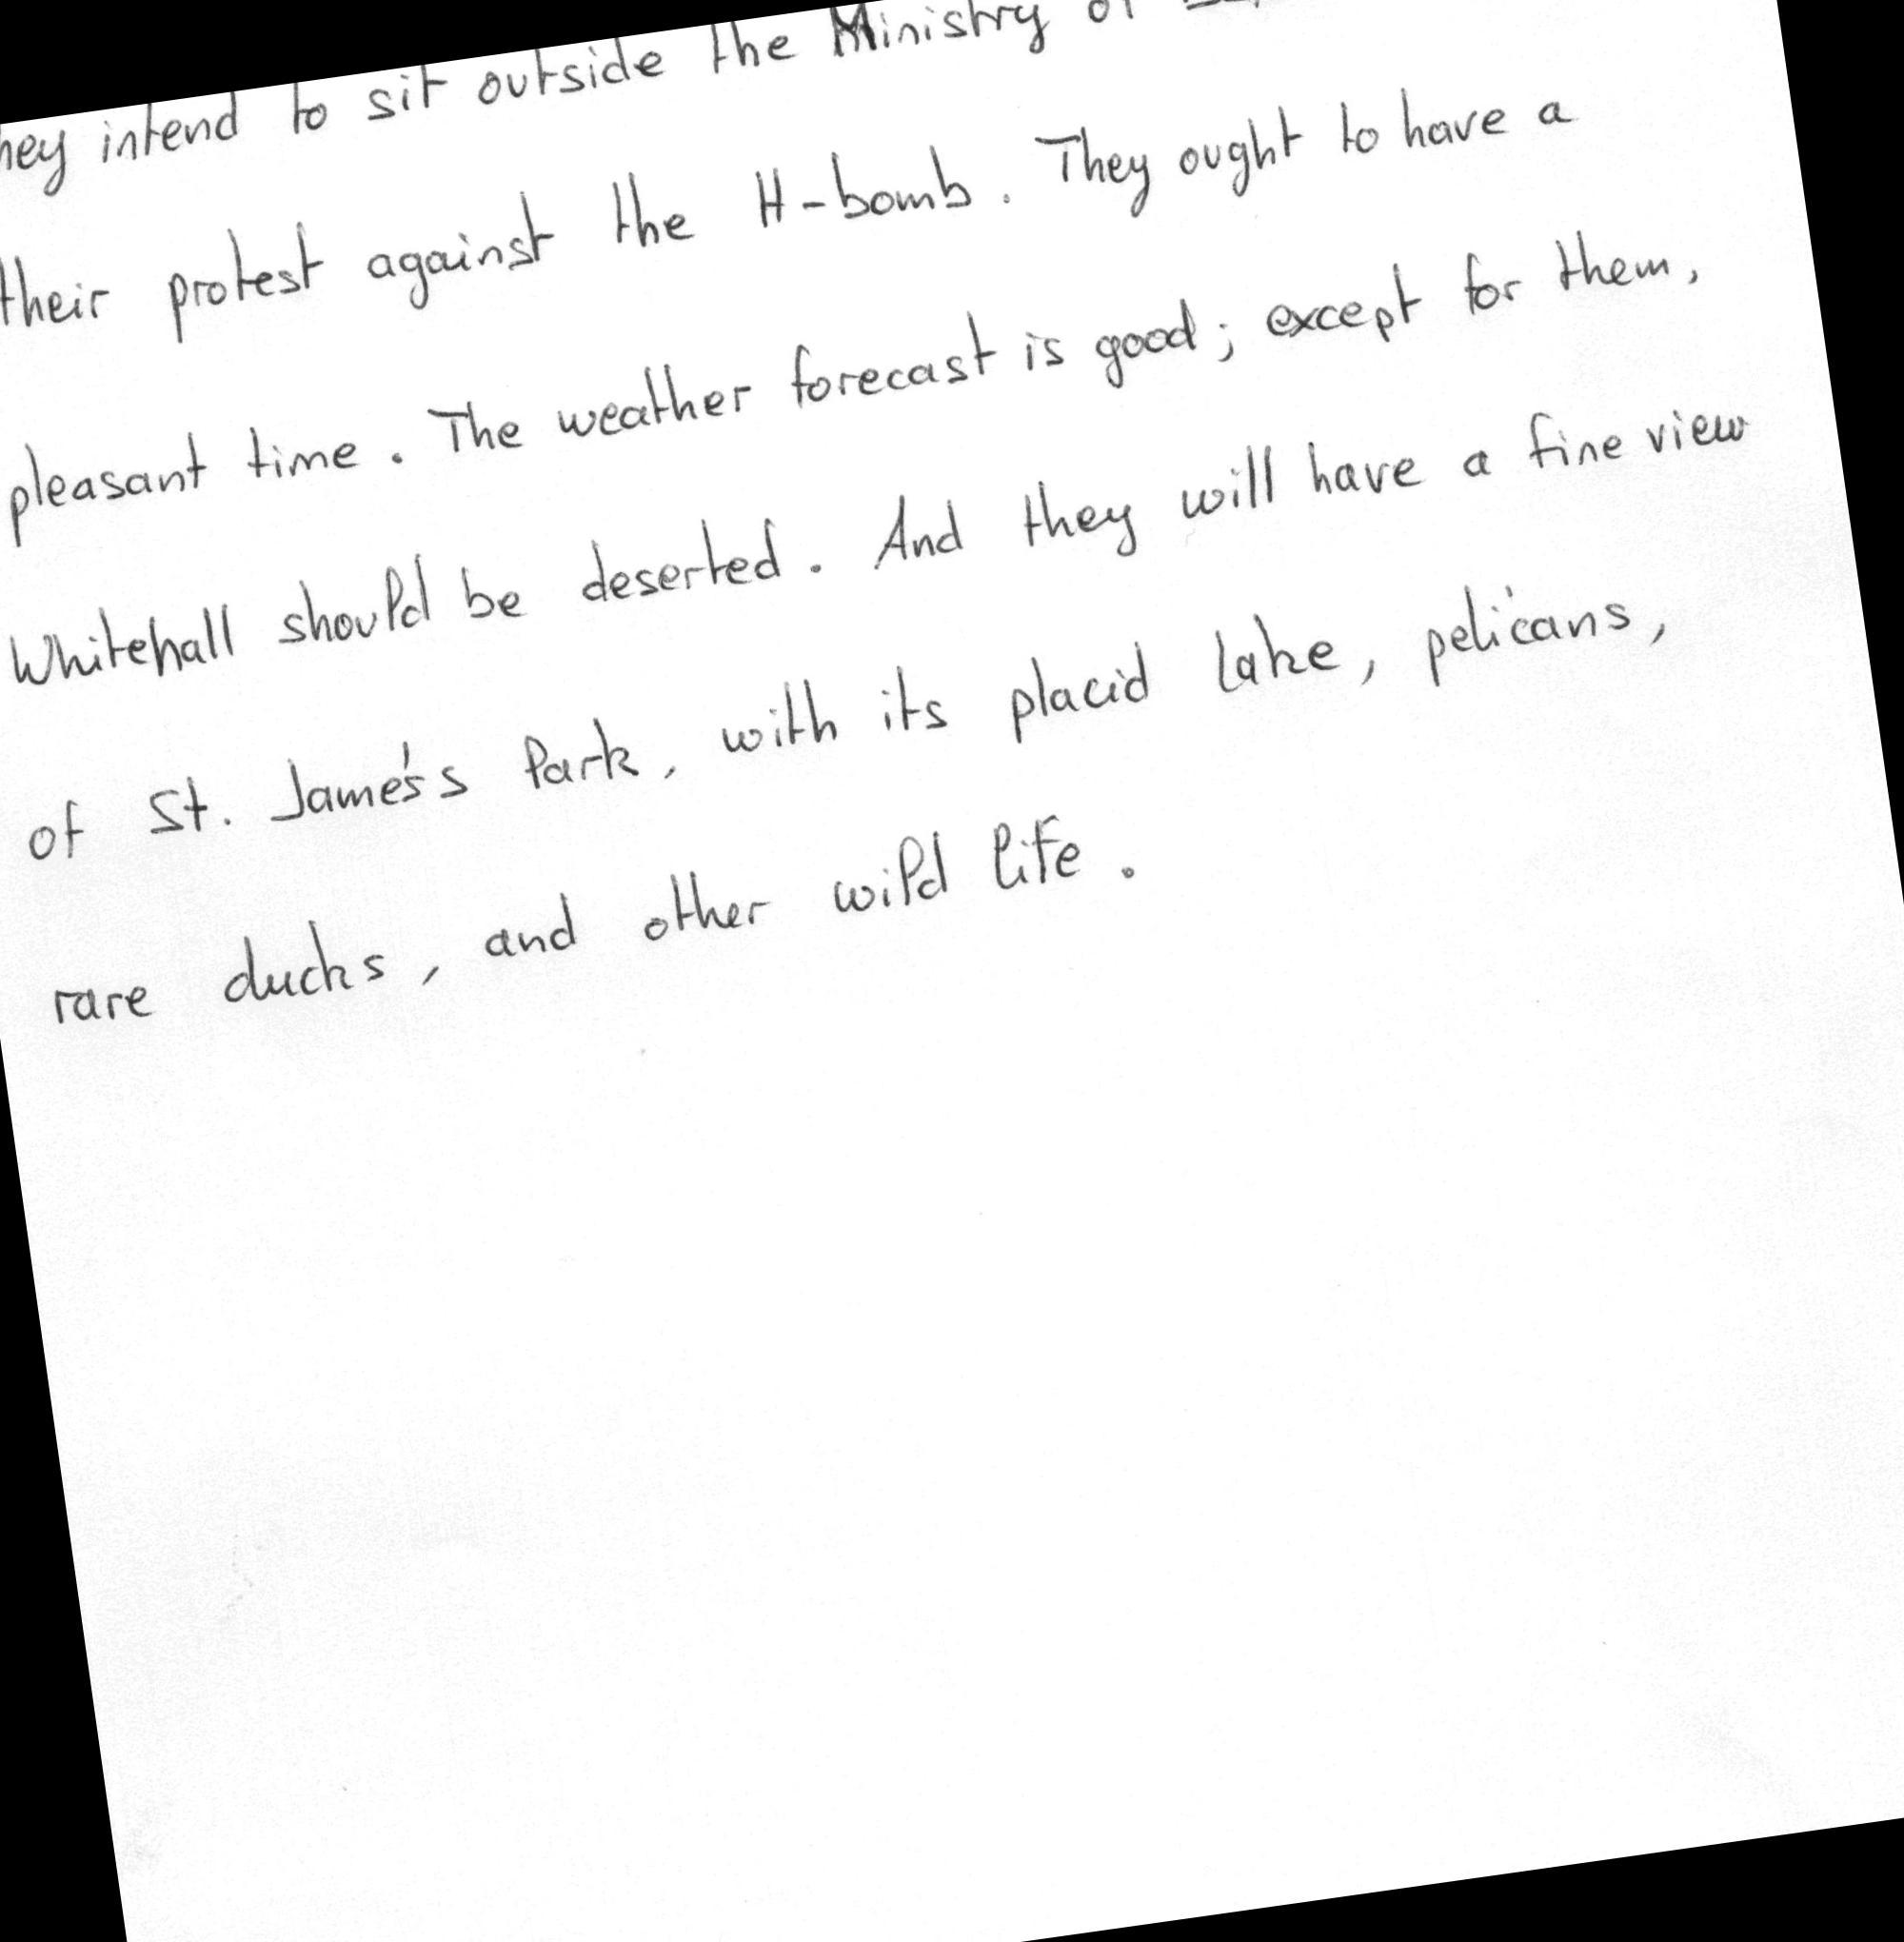 hey intend to sit outside the Ministry of
their protest against the H-bomb. They ought to have a
pleasant time. The weather forecast is good; except for them,
Whitehall should be deserted. And they will have a fine view
of St. James's Park, with its placid lake, pelicans,
rare ducks, and other wild life.